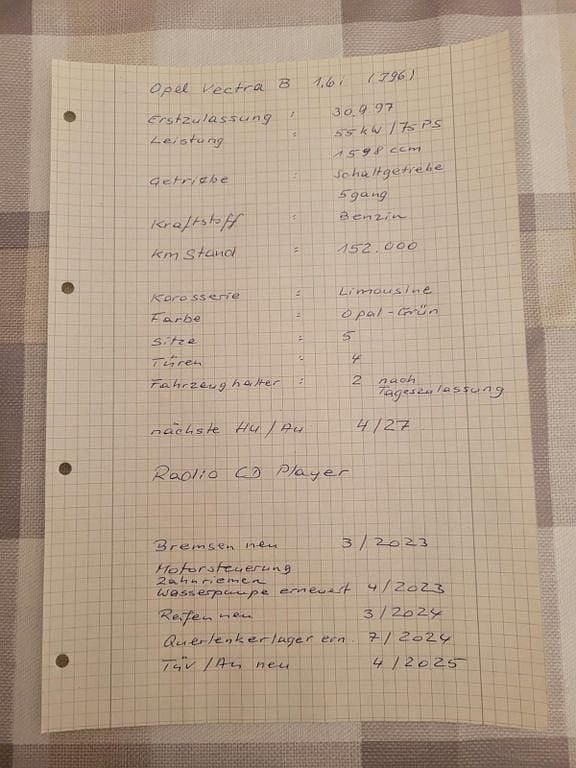 Opel Vectra B 1,6i (J96)
Erstzulassung : 30.9.97
Leistung : 55kW/75PS
1598 ccm
Getriebe : Schaltgetriebe
5gang
Kraftstoff : Benzin
km Stand : 152.000
Korosserie : Limousine
Farbe : Opal-Grün
Sitze : 5
Türen : 4
Fahrzeughalter : 2 nach
Tageszulassung
nächste Hu/Au 4/27
Radio CD Player
Bremsen neu 3/2023
Motorsteuerung
Zahnriemen
Wasserpumpe erneuert 4/2023
Reifen neu 3/2024
Querlenkerlager ern. 7/2024
Tüv/Au neu 4/2025